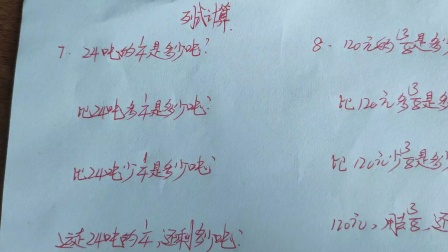 列式计算
7. 24吨的1/4是多少吨?
8. 120元的3/8是多
比24吨多1/4是多少吨?
比120元多3/8是多
比24吨少1/4是多少吨?
比120元少3/8是多
运走24吨的1/4,还剩多少吨?
120元,用去3/8,还